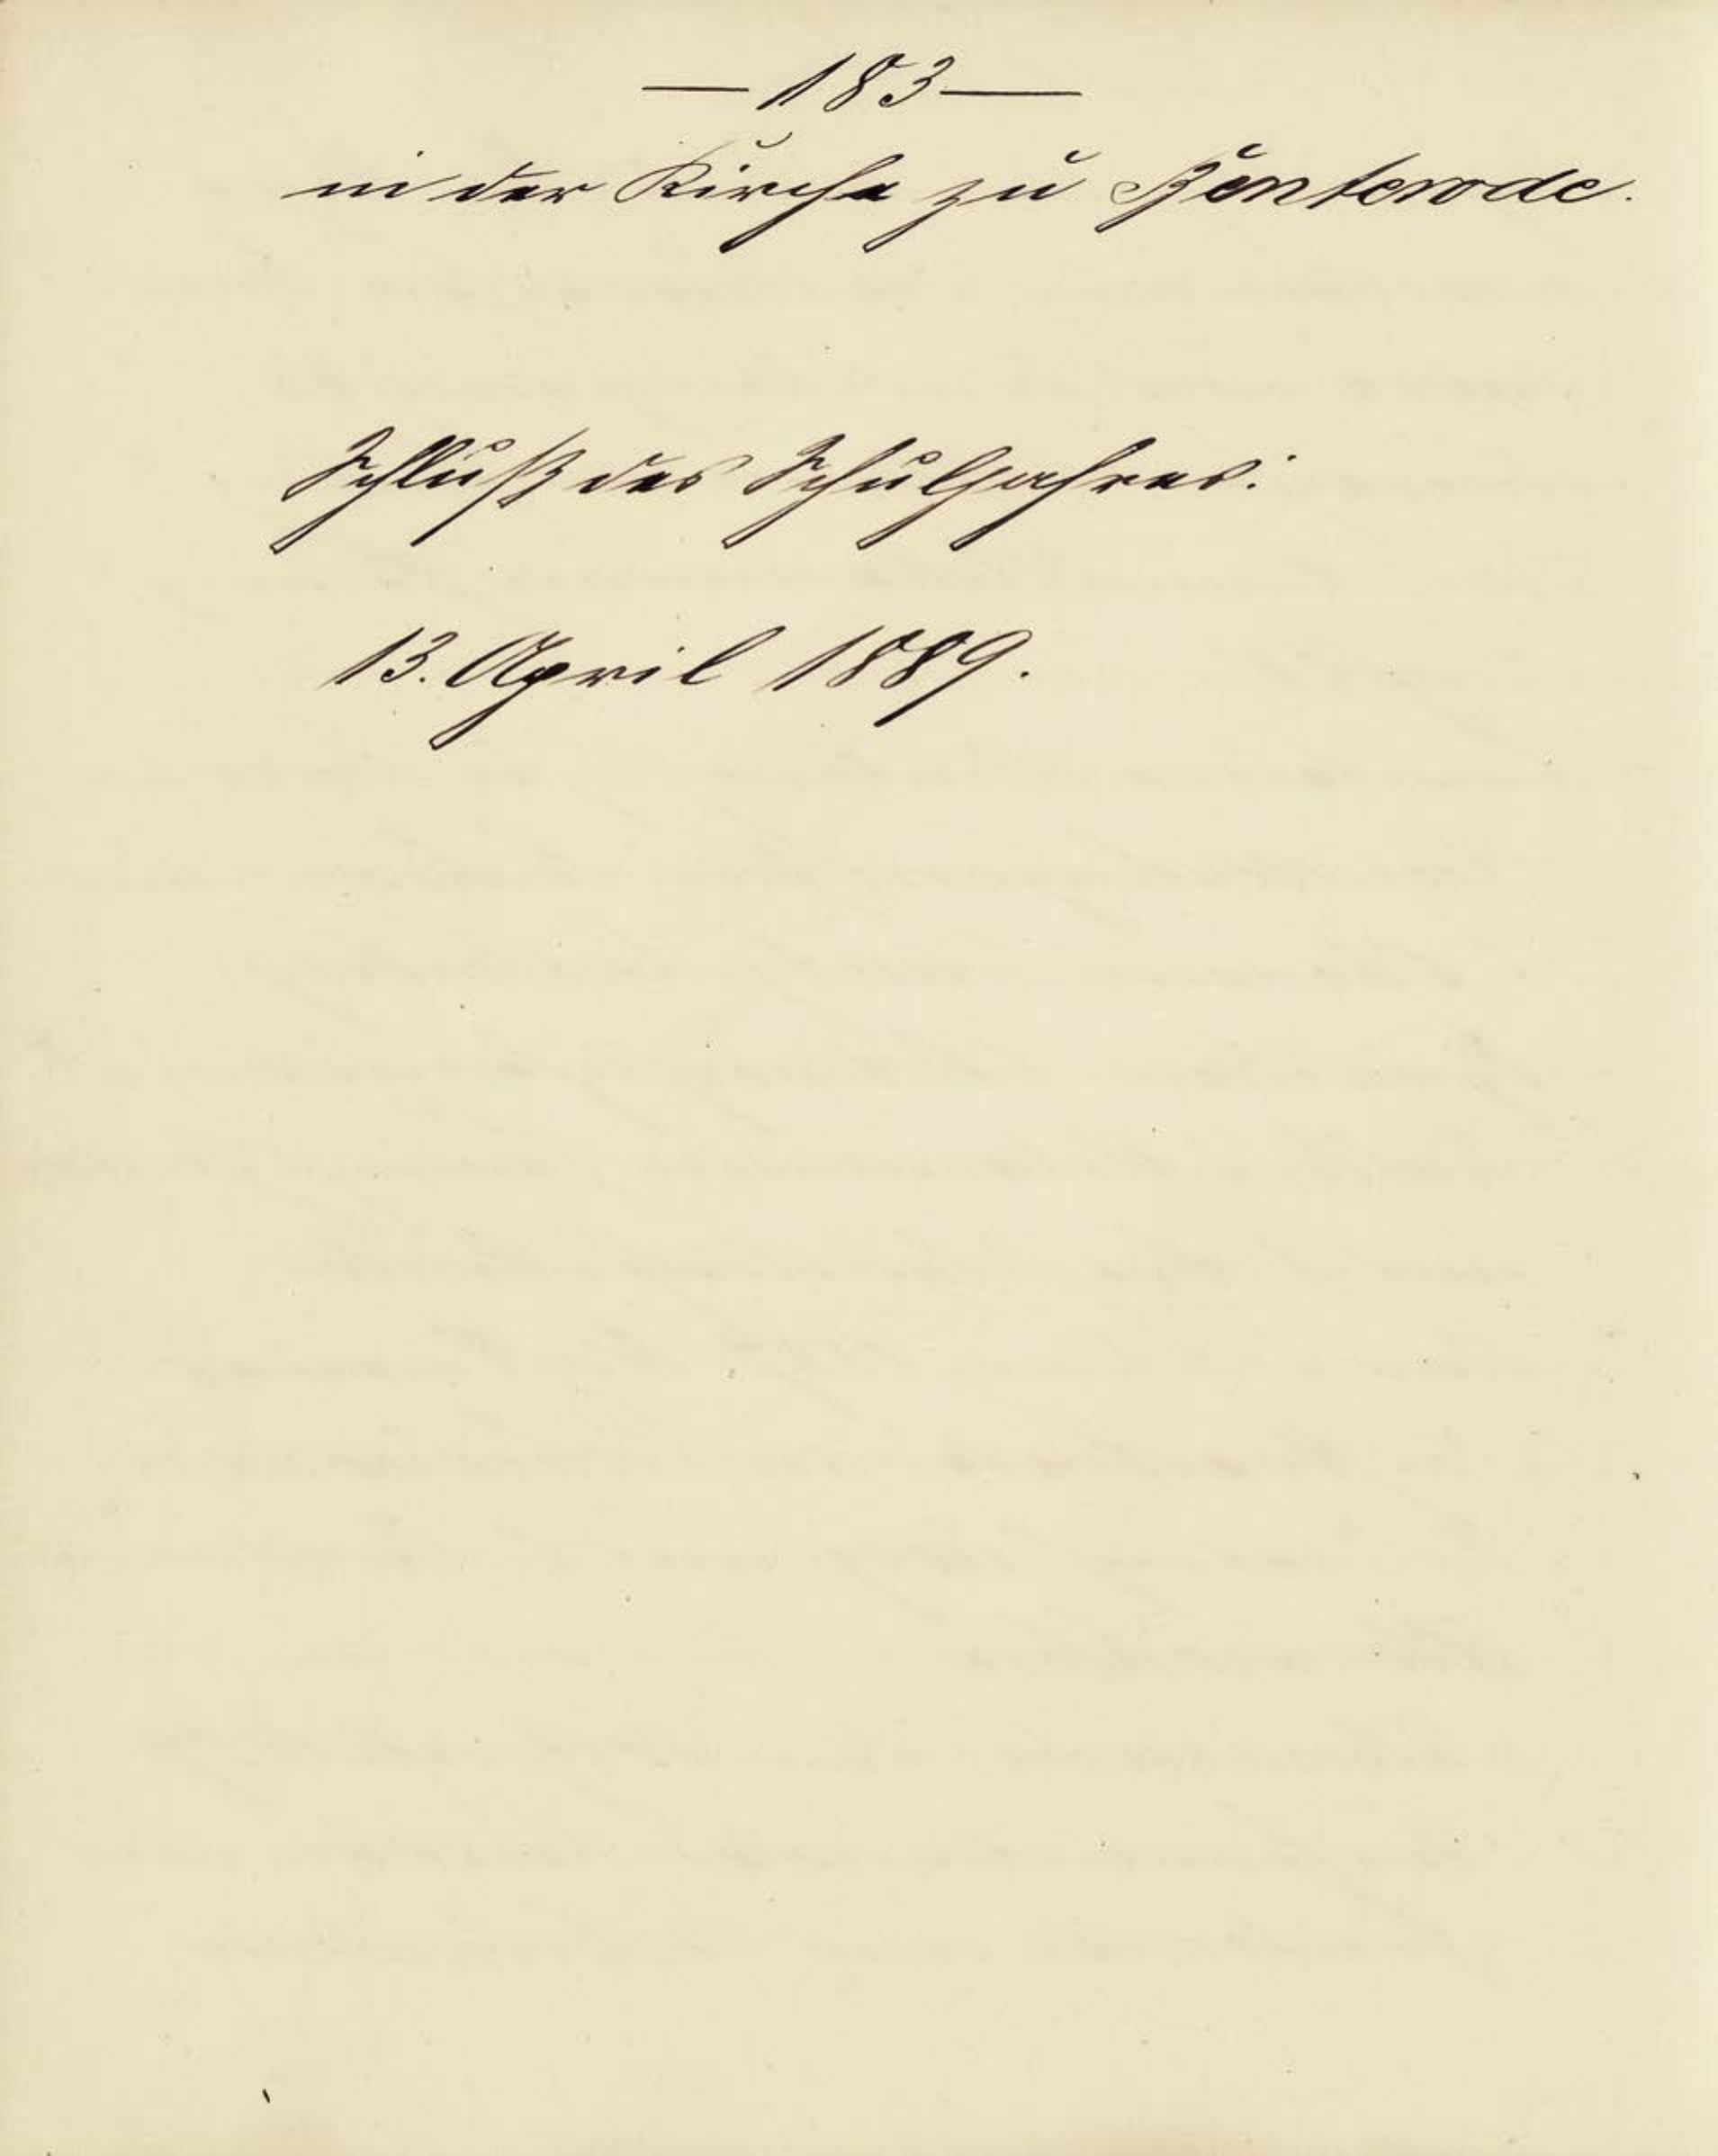 — 183 —
in der Kirche zu Benterode.
Schluß des Schuljahres:
13. April 1889.